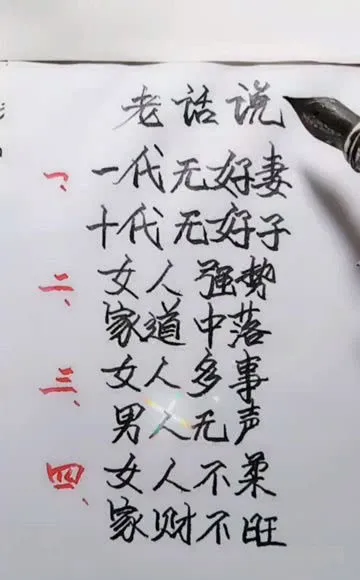 老话说
一、一代无好妻
十代无好子
二、女人强势
家道中落
三、女人多事
男人无声
四、女人不柔
家财不旺